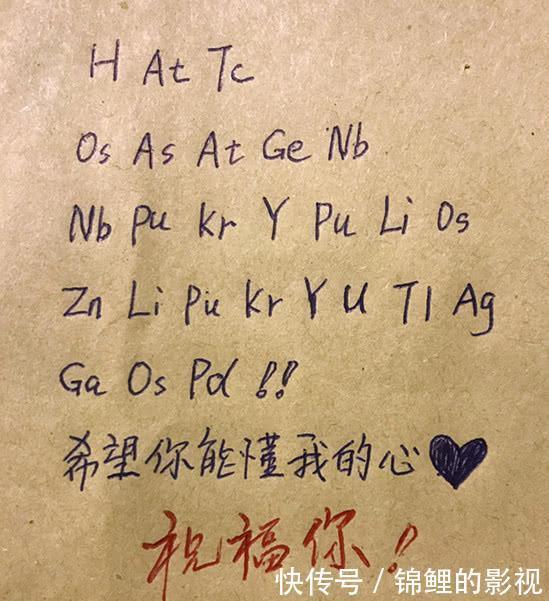 H At Tc
Os As At Ge Nb
Nb Pu Kr Y Pu Li Os
Zn Li Pu Kr Y U Tl Ag
Ga Os Pd !!
希望你能懂我的心♥
祝福你!
快传号 / 锦鲤的影视